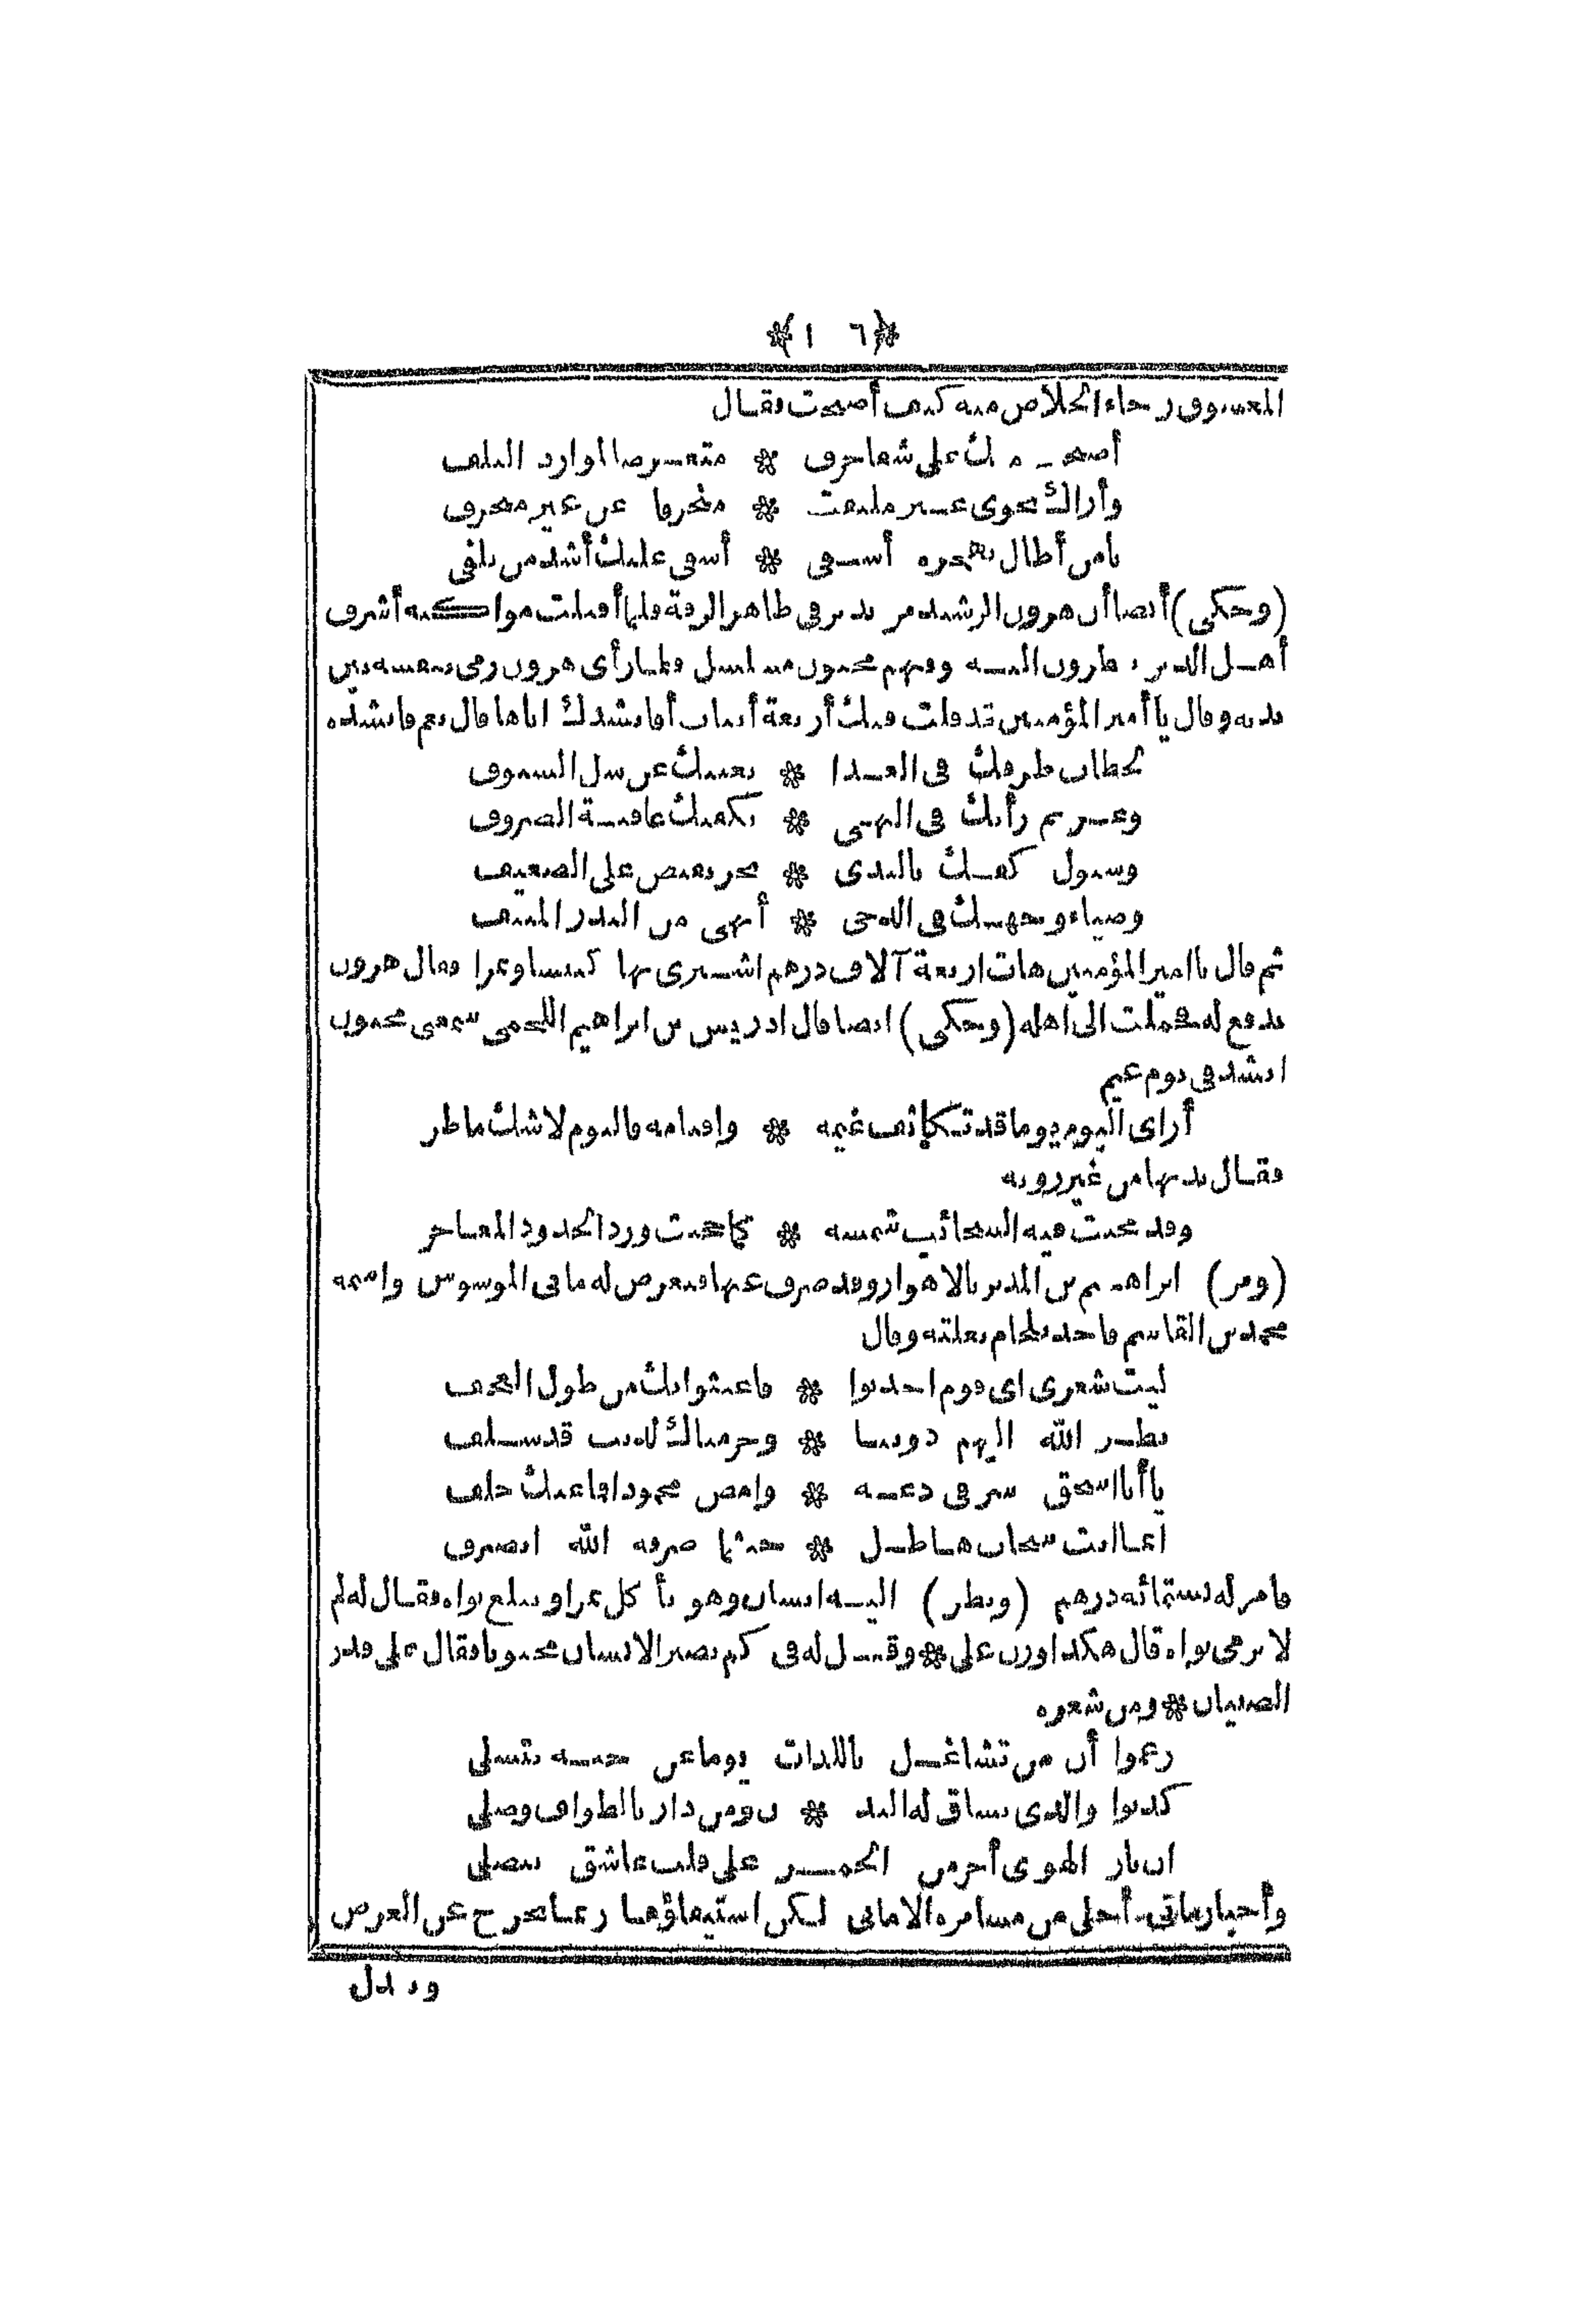 ﴿١٦﴾
المعشوق رجاء الخلاص منه كيف أصبحت فقال
أصبحت منك على شفا جرف * متعرضا لموارد التلف
وأراك نحوى غير ملتفت * منحرفا عن غير منحرف
يا من أطال بهجره أسفى * أسفى عليك أشد من تلفى
(وحكى) أيضا أن هرون الرشيد مر بدير فى ظاهر الرقة فلما أقبلت مواكبه أشرف
أهل الدير ينظرون اليه وفيهم مجنون مسلسل فلما رأى هرون رمى بنفسه بين
يديه وقال يا أمير المؤمنين قد قلت فيك أربعة أبيات أفأنشدك اياها قال نعم فأنشده
لحظات طرفك فى العدا * تغنيك عن سل السيوف
وعزيم رأيك فى النهى * يكفيك عاقبة الصروف
وسيول كفك بالندى * بحر يفيض على الضعيف
وضياء وجهك فى الدجى * أبهى من البدر المنيف
ثم قال يا امير المؤمنين هات اربعة آلاف درهم اشترى بها كبيسا وتمرا فقال هرون
يدفع له فحملت الى أهله (وحكى) ايضا قال ادريس بن ابراهيم اللخمى سمعنى مجنون
انشد فى يوم غيم
أرى اليوم يوما قد تكاثف غيمه * واقدامه فاليوم لا شك ماطر
فقال بديها من غير رويه
وقد حجبت فيه السحائب شمسه * كما حجبت ورد الخدود المعاجر
(ومر) ابراهيم بن المدبر بالاهواز وقد صرف عنها فتعرض له مانى الموسوس واسمه
محمد بن القاسم فاخذ بلجام بغلته وقال
ليت شعرى اى قوم اجدبوا * فاغيثوا بك من طول العجف
نظر الله اليهم دوننا * وحرمناك لذنب قد سلف
يا أبا اسحق سر فى دعة * وامض محمودا فما عنك خلف
انما انت سحاب هاطل * حيثما صرفه الله انصرف
فامر له بستمائة درهم (ونظر) اليه انسان وهو يأكل تمرا ويبلع نواه فقال له لم
لا ترمى نواه قال هكذا وزن على * وقيل له فى كم يصير الانسان مجنونا فقال على قدر
الصبيان * ومن شعره
زعموا أن من تشاغل باللذات يوما عن حبه يتسلى
كذبوا والذى تساق له البد * ن ومن دار بالطواف وصلى
ان نار الهوى أحر من الجمر على قلب عاشق يتصلى
وأخبار مانى أحلى من مسامرة الامانى لكن استيفاؤها ربما يخرج عن الغرض